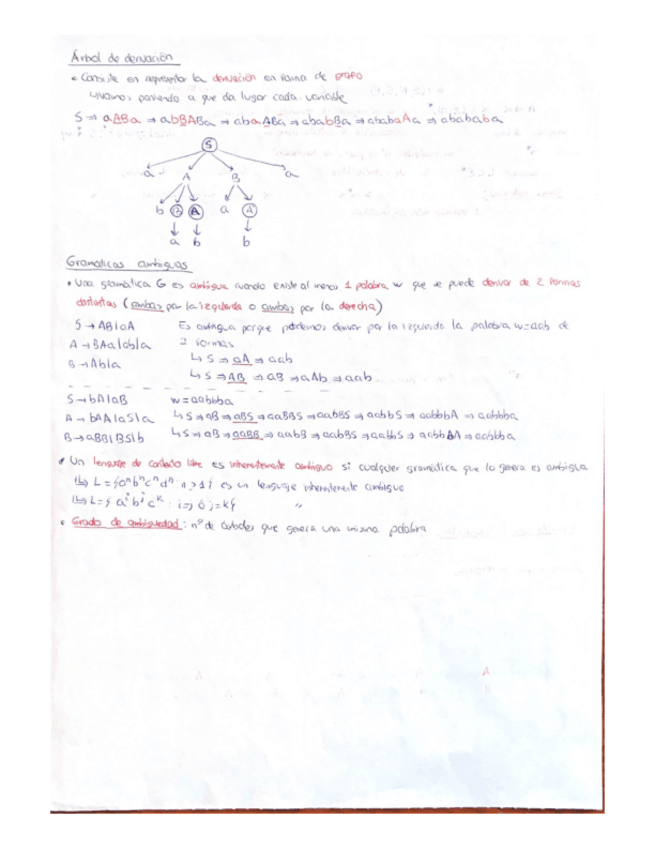 Árbol de derivación
• Consiste en representar la derivación en forma de grafo
vamos poniendo a que da lugar cada variable
S ⇒ aABa ⇒ abBABa ⇒ abaABa ⇒ ababBa ⇒ ababaAa ⇒ abababa
S
a A B a
b B A a A
a b b
Gramaticas ambiguas
• Una gramática G es ambigua cuando existe al menos 1 palabra w que se puede derivar de 2 formas
distintas (ambas por la izquierda o ambas por la derecha)
S → AB|aA Es ambigua porque podemos derivar por la izquierda la palabra w=aab de
A → BAa|ab|a 2 formas
B → Ab|a ↳ S ⇒ aA ⇒ aab
↳ S ⇒ AB ⇒ aB ⇒ aAb ⇒ aab
S → bA|aB w = aabbba
A → bAA|aS|a ↳ S ⇒ aB ⇒ aBS ⇒ aaBBS ⇒ aabBS ⇒ aabbS ⇒ aabbbA ⇒ aabbba
B → aBB|BS|b ↳ S ⇒ aB ⇒ aaBB ⇒ aabB ⇒ aabBS ⇒ aabbS ⇒ aabbbA ⇒ aabbba
• Un lenguaje de contexto libre es inherentemente ambiguo si cualquier gramática que lo genera es ambigua
↳ L = {aⁿbⁿcⁿdⁿ : n ≥ 1} es un lenguaje inherentemente ambiguo
↳ L = { aⁱ bʲ cᵏ : i=j ó j=k} "
• Grado de ambiguedad : nº de árboles que genera una misma palabra